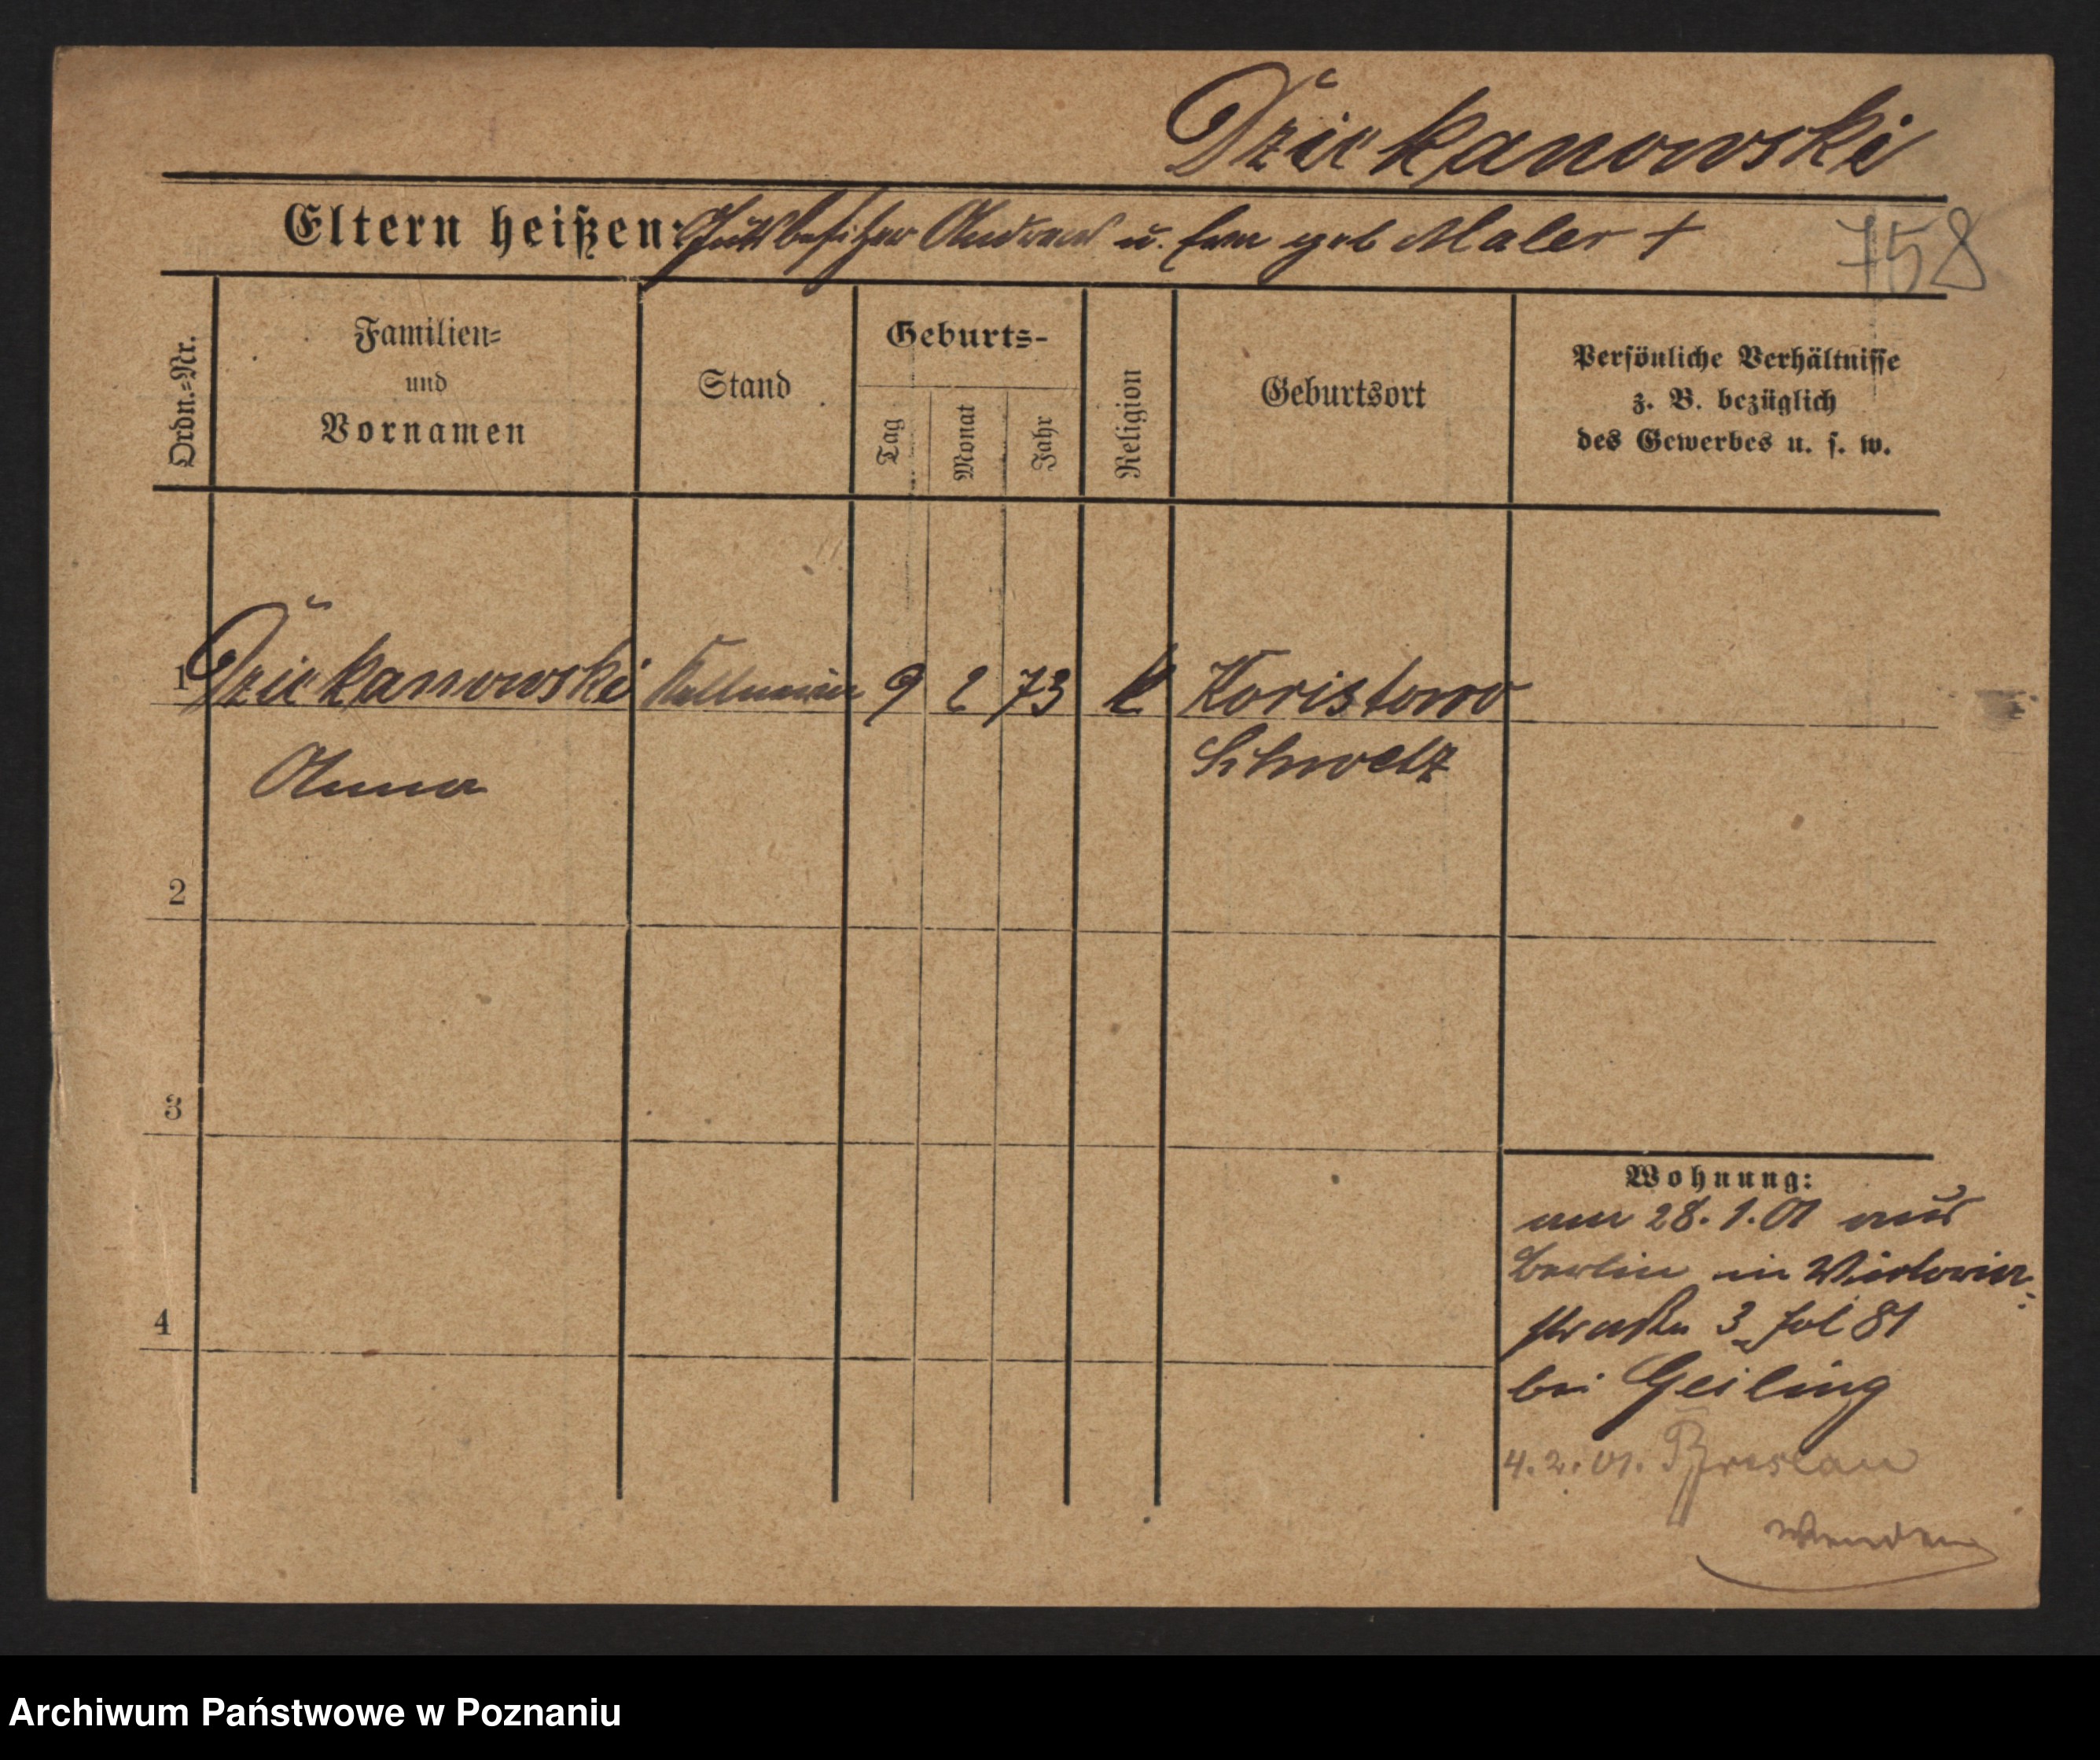 Dziekanowski
Eltern heißen: Gutsbesitzer Andreas u. Eva geb Maler +
758
Ordn.=Nr.
Familien=
und
Vornamen
Stand
Geburts-
Tag
Monat
Jahr
Religion
Geburtsort
Persönliche Verhältnisse
z. B. bezüglich
des Gewerbes u. s. w.
1 Dziekanowski Kellnerin 9 2 73 k Koristowo
Anna Schwetz
2
3
4
Wohnung:
am 28.1.01 aus
Berlin in Victoria=
straße 3 Fol 81
bei Geiling
4.2.01. Breslau
Wenden
Archiwum Państwowe w Poznaniu